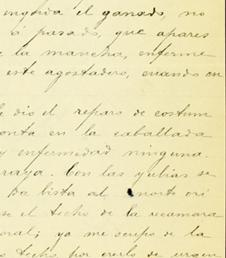 el ganado, no
pasado, que apares
la mancha, enferme
este agostadero, cuando en
dio el reparo de costum
en la caballada
y enfermedad ninguna.
raya. Con las yubias se
lista al norte ori
el techo de la recamara
ya me ocupo de la
techo por